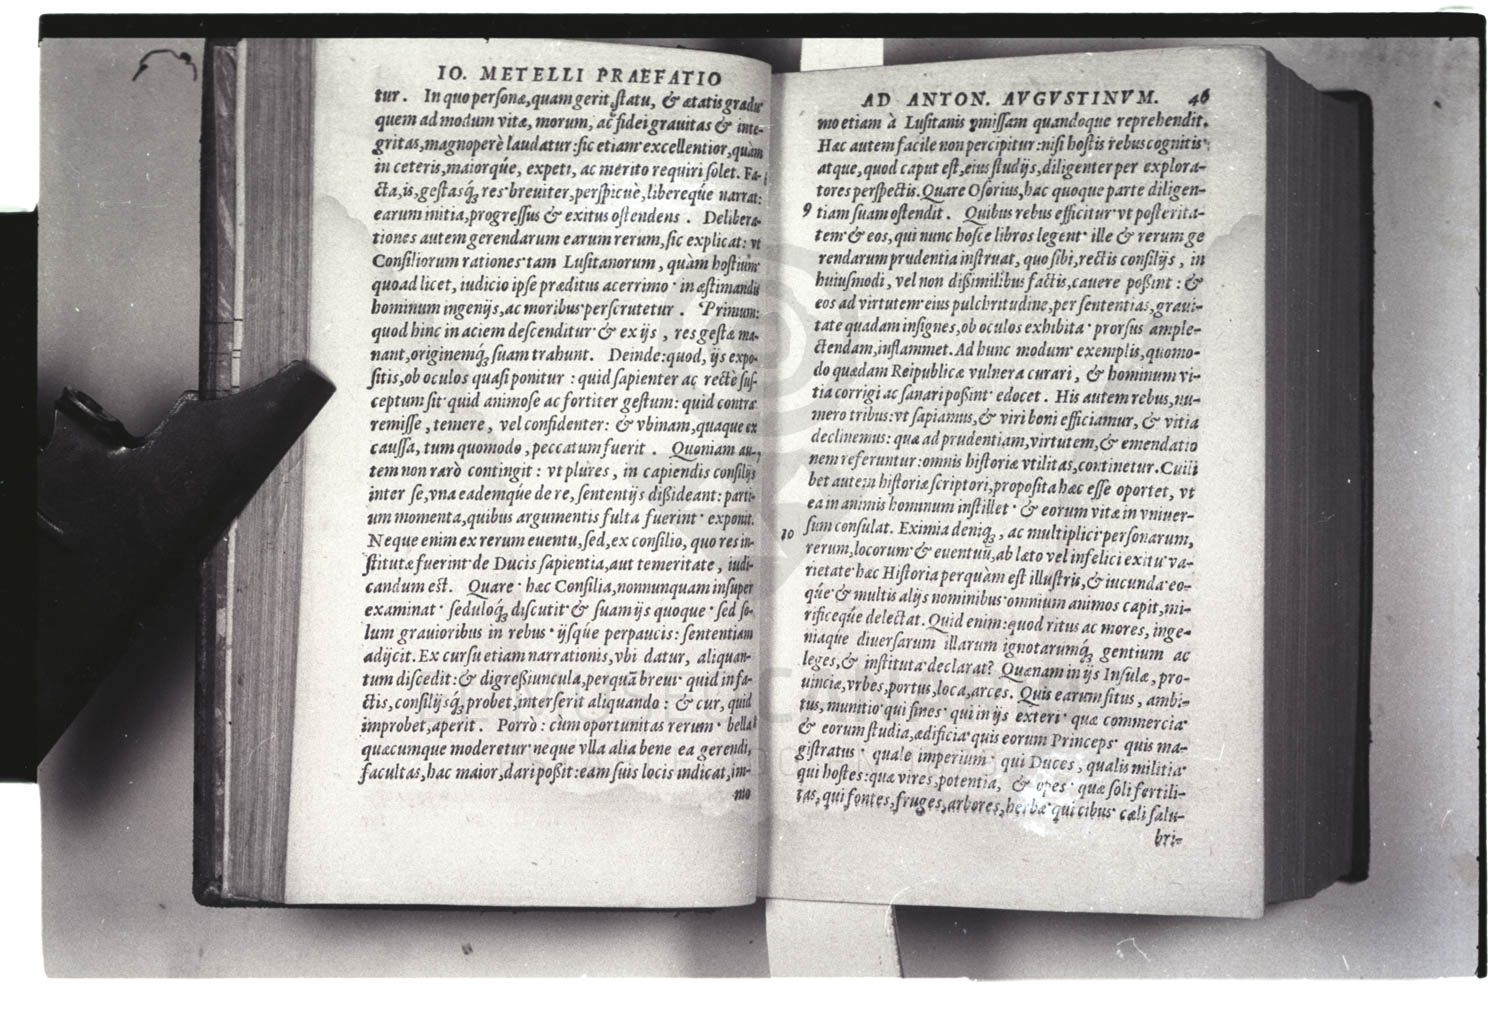 IO. METELLI PRAEFATIO
tur. In quo personæ, quam gerit, statu, & ætatis gradu
quem ad modum vitæ, morum, ac fidei grauitas & inte-
gritas, magnoperè laudatur: sic etiam excellentior, quàm
in ceteris, maiorq́ue, expeti, ac merito requiri solet. Fa-
cta, is, gestasq́, res breuiter, perspicuè, libereq́ue narrat:
earum initia, progressus & exitus ostendens. Delibera-
tiones autem gerendarum earum rerum, sic explicat: vt
Consiliorum rationes tam Lusitanorum, quàm hostium
quoad licet, iudicio ipse præditus acerrimo in æstimandis
hominum ingenijs, ac moribus perscrutetur. Primum:
quod hinc in aciem descenditur & ex ijs, res gestæ ma-
nant, originemq́, suam trahunt. Deinde: quod, ijs expo-
sitis, ob oculos quasi ponitur: quid sapienter ac rectè sus-
ceptum sit quid animose ac fortiter gestum: quid contra
remisse, temere, vel confidenter: & vbinam, quaque ex
caussa, tum quomodo, peccatum fuerit. Quoniam au-
tem non rarò contingit: vt plures, in capiendis consilijs
inter se, vna eademq́ue de re, sententijs dißideant: parti-
um momenta, quibus argumentis fulta fuerint exponit.
Neque enim ex rerum euentu, sed, ex consilio, quo res in-
stitutæ fuerint de Ducis sapientia, aut temeritate, iudi-
candum est. Quare hæc Consilia, nonnunquam insuper
examinat seduloq́, discutit & suam ijs quoque sed so-
lum grauioribus in rebus ijsq́ue perpaucis: sententiam
adijcit. Ex cursu etiam narrationis, vbi datur, aliquan-
tum discedit: & digreßiuncula, perquā breui quid in fa-
ctis, consilijsq́, probet, interserit aliquando: & cur, quid
improbet, aperit. Porrò: cùm oportunitas rerum bella
quæcumque moderetur neque vlla alia bene ea gerendi,
facultas, hac maior, dari poßit: eam suis locis indicat, im-
mo
AD ANTON. AVGVSTINVM. 46
mo etiam à Lusitanis p̄missam quandoque reprehendit.
Hæc autem facile non percipitur: nisi hostis rebus cognitis
atque, quod caput est, eius studijs, diligenter per explora-
tores perspectis. Quare Osorius, hac quoque parte diligen-
9 tiam suam ostendit. Quibus rebus efficitur vt posterita-
tem & eos, qui nunc hosce libros legent ille & rerum ge
rendarum prudentia instruat, quo sibi, rectis consilijs, in
huiusmodi, vel non dißimilibus factis, cauere poßint: &
eos ad virtutem eius pulchritudine, per sententias, graui-
tate quadam insignes, ob oculos exhibita prorsus ample-
ctendam, inflammet. Ad hunc modum exemplis, quomo-
do quædam Reipublicæ vulnera curari, & hominum vi-
tia corrigi ac sanari poßint edocet. His autem rebus, nu-
mero tribus: vt sapiamus, & viri boni efficiamur, & vitia
declinemus: quæ ad prudentiam, virtutem, & emendatio
nem referuntur: omnis historiæ vtilitas, continetur. Cuili
bet autem historiæ scriptori, proposita hæc esse oportet, vt
ea in animis hominum instillet & eorum vitæ in vniuer-
10 sum consulat. Eximia deniq́, ac multiplici personarum,
rerum, locorum & euentuū, ab læto vel infelici exitu va-
rietate hæc Historia perquàm est illustris, & iucunda eo-
q́ue & multis alijs nominibus omnium animos capit, mi-
rificeq́ue delectat. Quid enim: quod ritus ac mores, inge-
niaque diuersarum illarum ignotarumq́, gentium ac
leges, & instituta declarat? Quænam in ijs Insulæ, pro-
uinciæ, vrbes, portus, loca, arces. Quis earum situs, ambi-
tus, munitio qui fines qui in ijs exteri quæ commercia
& eorum studia, ædificia quis eorum Princeps quis ma-
gistratus quale imperium qui Duces, qualis militia
qui hostes: quæ vires, potentia, & opes quæ soli fertili-
tas, qui fontes, fruges, arbores, herbæ qui cibus cæli salu-
bri-